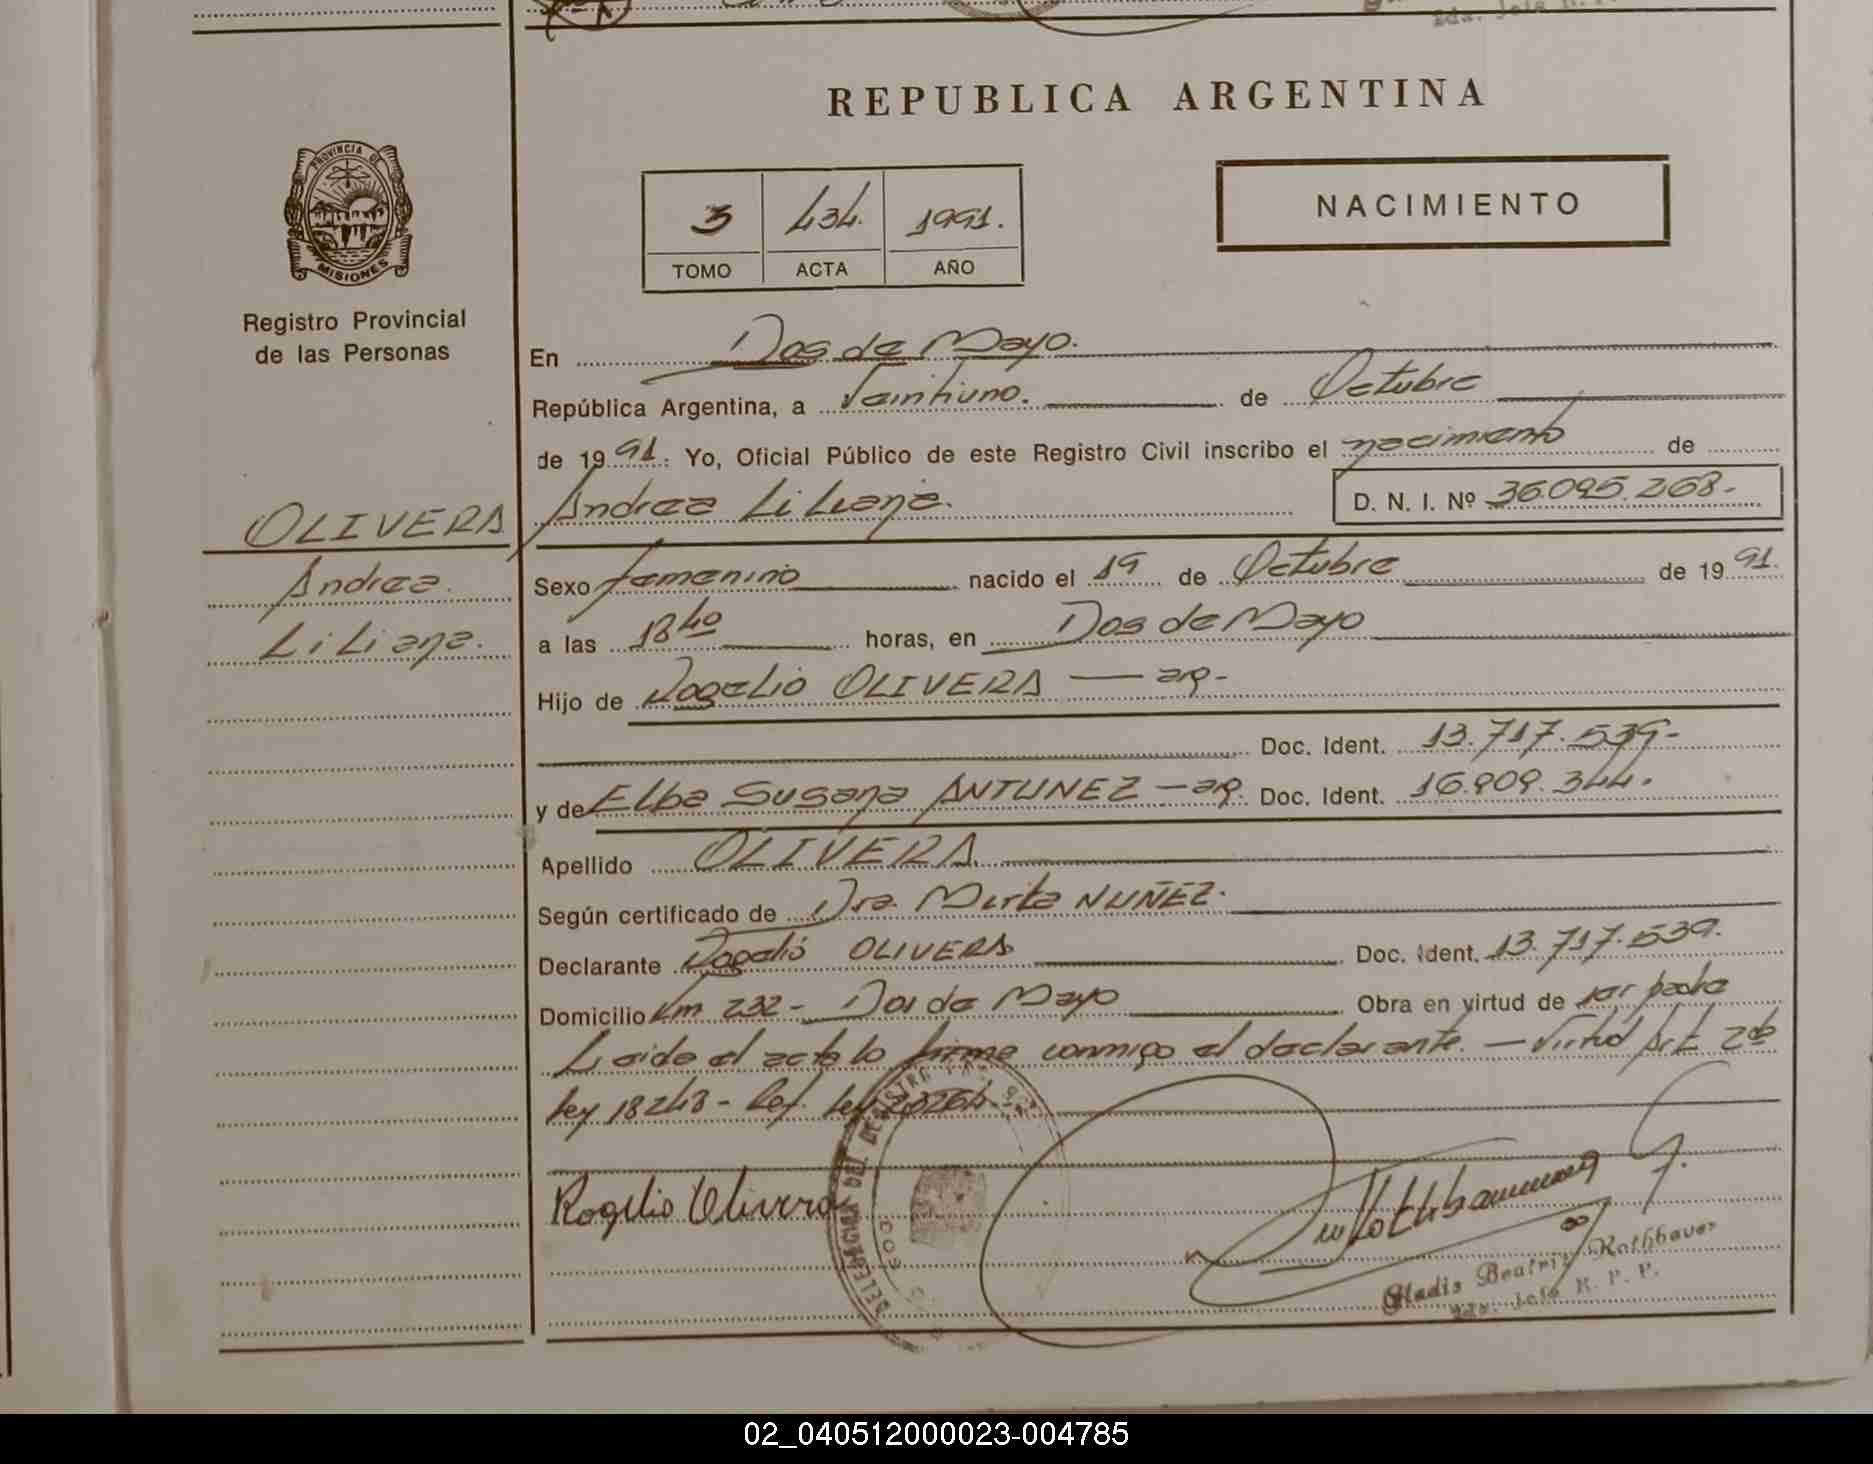 REPUBLICA ARGENTINA
PROVINCIA DE
MISIONES
Registro Provincial
de las Personas
3 434. 1991.
TOMO ACTA AÑO
NACIMIENTO
En Dos de Mayo.
República Argentina, a Veintiuno. de Octubre
de 1991. Yo, Oficial Público de este Registro Civil inscribo el nacimiento de
OLIVERA
Andrea
Liliana.
Andrea Liliana. D. N. I. Nº 36.095.268.-
Sexo femenino nacido el 19 de Octubre de 1991.
a las 18 40 horas, en Dos de Mayo
Hijo de Rogelio OLIVERA — arg-
Doc. Ident. 13.717.539-
y de Elba Susana ANTUNEZ — arg. Doc. Ident. 16.909.344.
Apellido OLIVERA
Según certificado de Dra. Mirta NUÑEZ.
Declarante Rogelio OLIVERA Doc. Ident. 13.717.539.
Domicilio Km 232 - Dos de Mayo Obra en virtud de ser padre
Leida el acta lo firma conmigo el declarante. — Virtud Art. 2do
Ley 18248 - Ref. Ley 23264-
Rogelio Olivera
DELEGACION DEL REGISTRO
Gladis Beatriz Rothbauer
R. P. P.
02_040512000023-004785